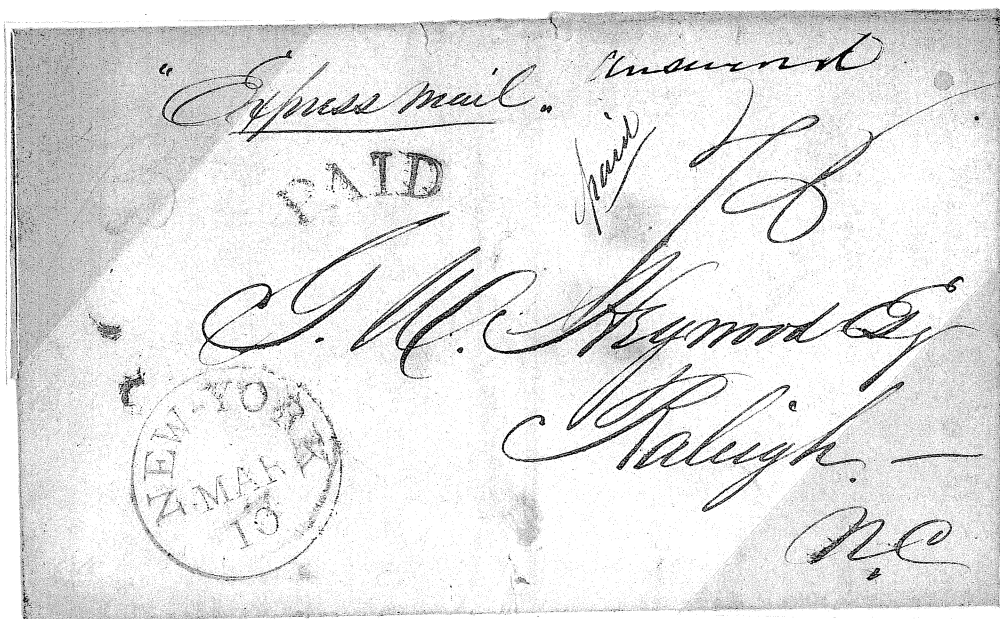 "Express Mail"
answered
PAID
paid
75
G. W. Haywood Esq
Raleigh.
N.C
NEW-YORK
MAR
10